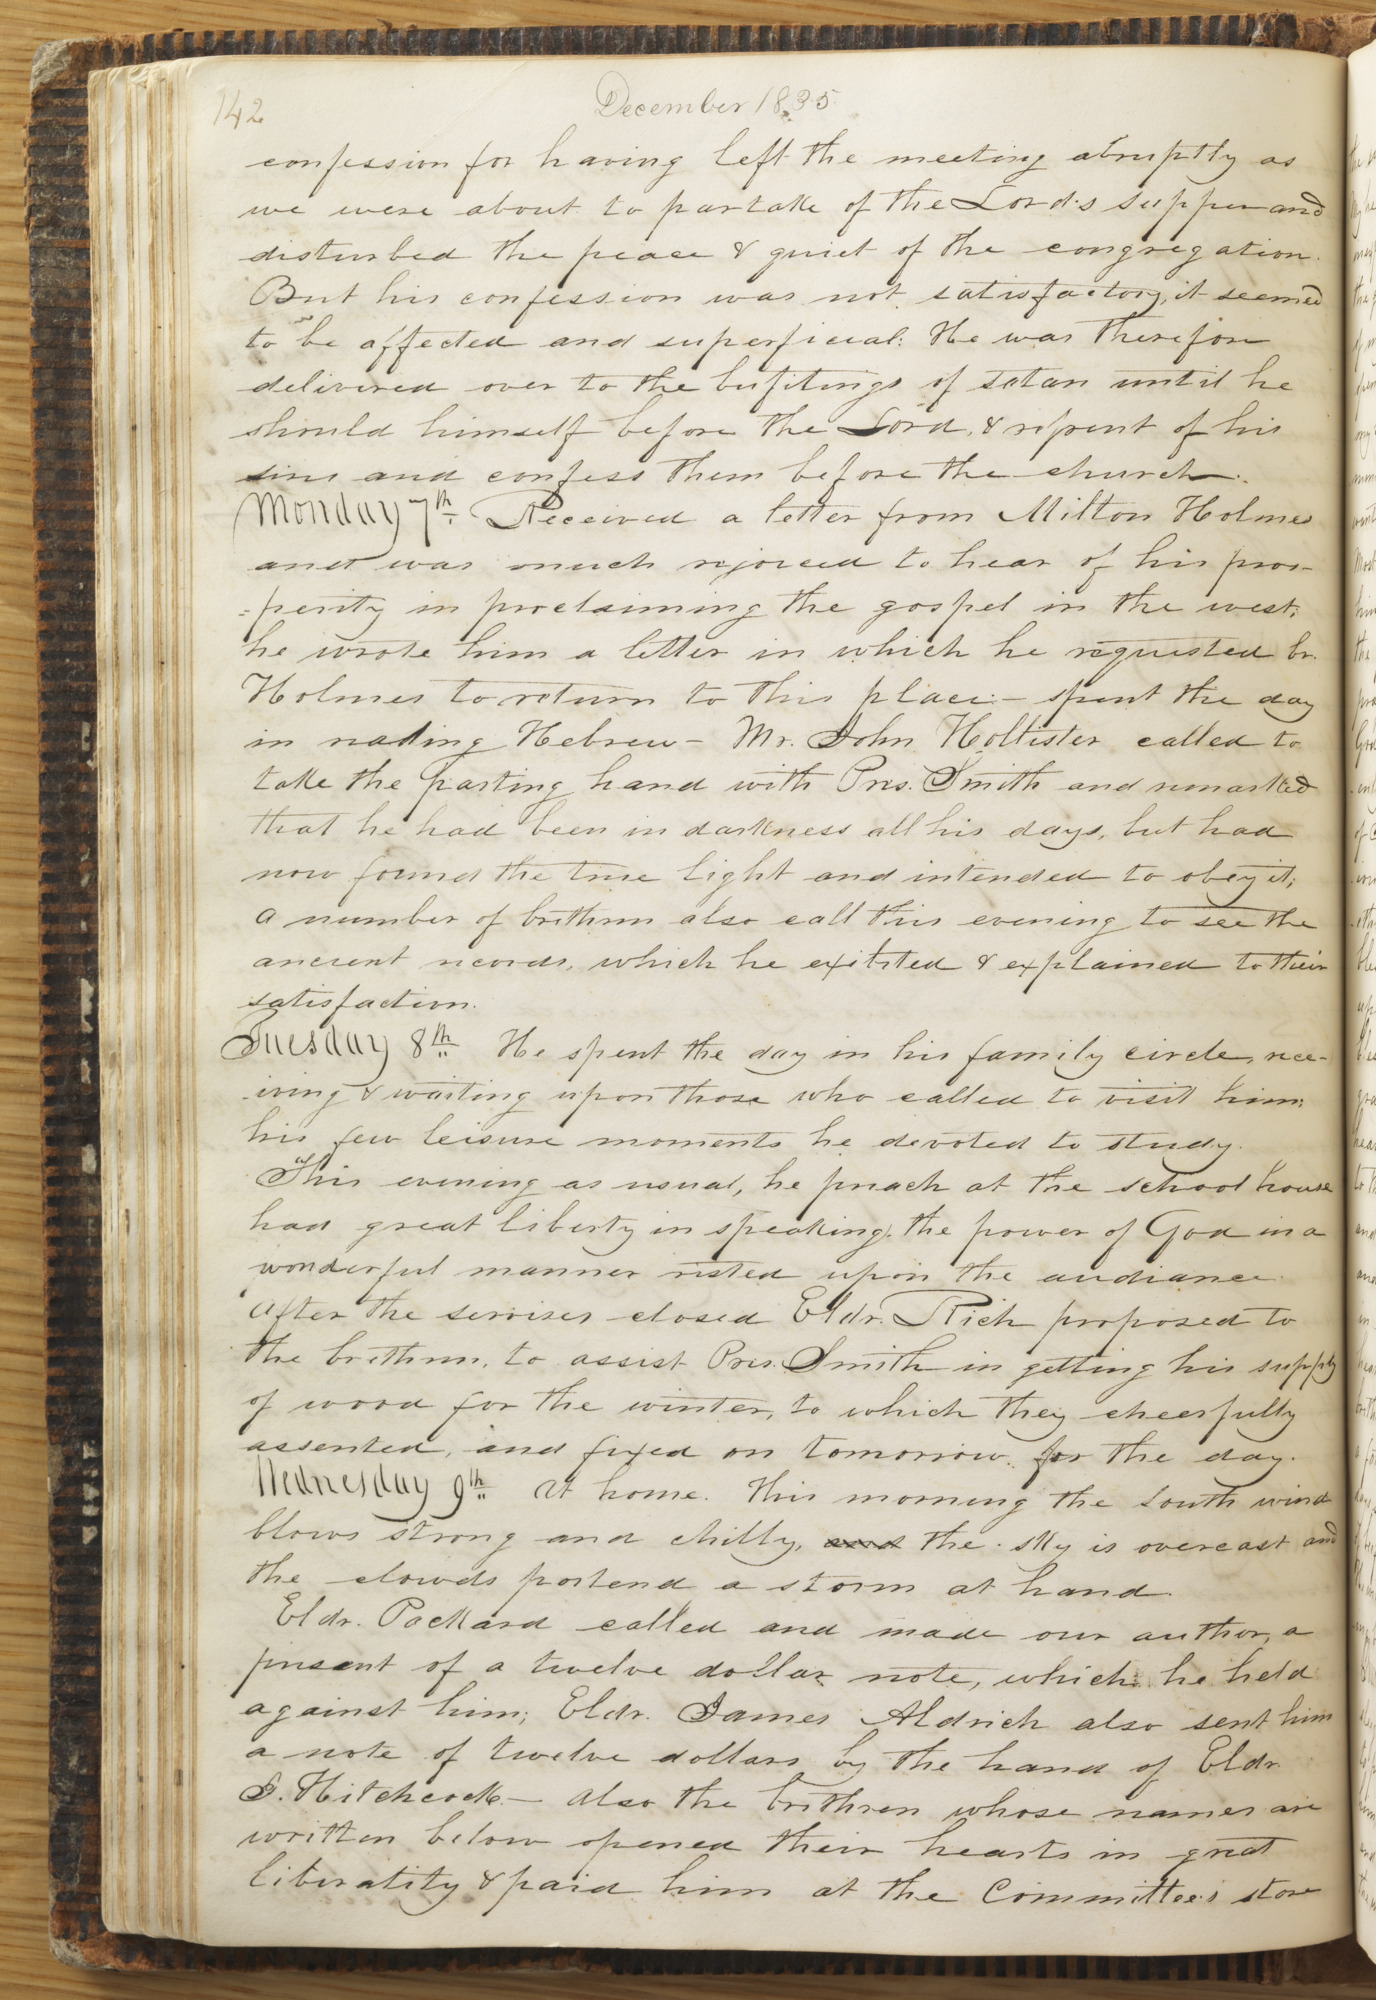 142
December 1835
confession for having left the meeting abruptly as
we were about to partake of the Lord's supper and
disturbed the peace & quiet of the congregation.
But his confession was not satisfactory, it seemed
to be affected and superficial: He was therefore
delivered over to the bufitings of satan until he
should himself before the Lord, & repent of his
sins and confess them before the church.
Monday 7th Received a letter from Milton Holmes
and was much rejoiced to hear of his pros-
=perity in proclaiming the gospel in the west;
he wrote him a letter in which he requested br.
Holmes to return to this place:— spent the day
in reading Hebrew— Mr. John Hollister called to
take the parting hand with Pres. Smith and remarked
that he had been in darkness all his days, but had
now found the true light and intended to obey it;
a number of brethren also call this evening to see the
ancient records, which he exibited & explained to their
satisfaction.
Tuesday 8th He spent the day in his family circle, rece-
iving & waiting upon those who called to visit him;
his few leisure moments he devoted to study.
This evening as usual, he preach at the school house
had great liberty in speaking, the power of God in a
wonderful manner rested upon the audiance.
After the servises closed Eldr. Rich proposed to
the brethren, to assist Pres. Smith in getting his supply
of wood for the winter, to which they cheerfully
assented, and fixed on tomorrow for the day.
Wednesday 9th At home. This morning the south wind
blows strong and chilly, and the sky is overcast and
the clowds portend a storm at hand.
Eldr. Packard called and made our author, a
present of a twelve dollar note, which he held
against him; Eldr. James Aldrich also sent him
a note of twelve dollars by the hand of Eldr.
J. Hitchcock— also the brethren whose names are
written below opened their hearts in great
liberality & paid him at the Committee's store